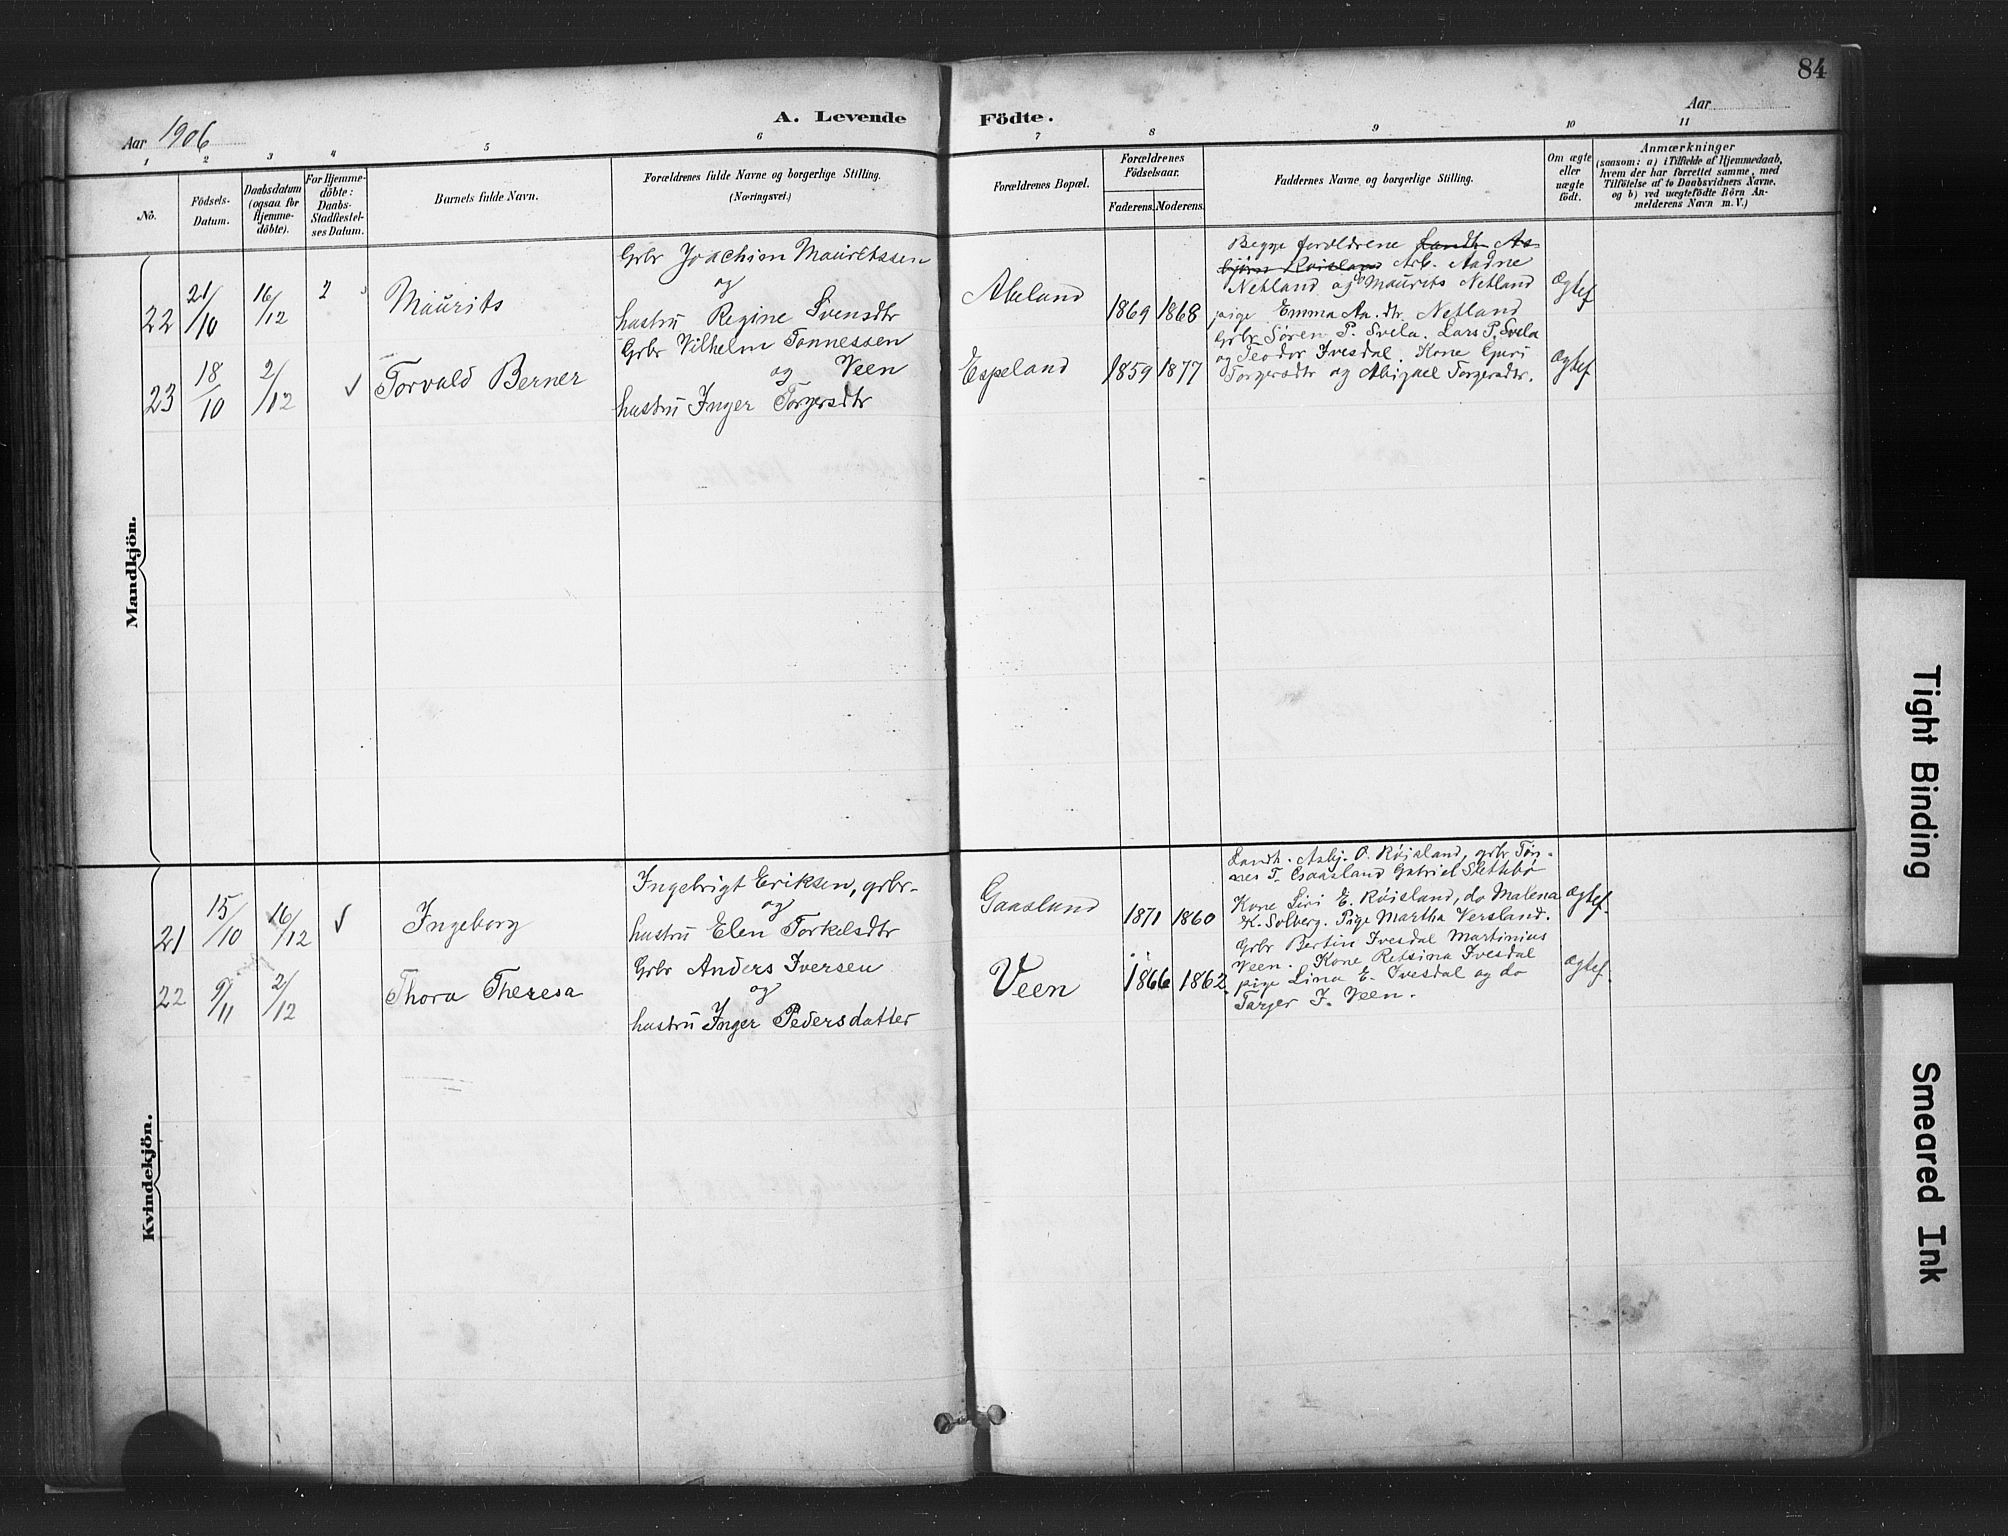 84
Aar 1906
A. Levende Födte.
Aar
1 2 3 4 5 6 7 8 9 10 11
No.
Födsels-
Datum.
Daabsdatum
(ogsaa for
Hjemme-
döbte).
For Hjemme-
döbte:
Daabs-
Stadfæstel-
ses Datum.
Barnets fulde Navn.
Forældrenes fulde Navne og borgerlige Stilling.
(Næringsvei.)
Forældrenes Bopæl.
Forældrenes
Födselsaar.
Faderens. Moderens.
Faddernes Navne og borgerlige Stilling.
Om ægte
eller
uægte
födt.
Anmærkninger
(saasom: a) i Tilfælde af Hjemmedaab,
hvem der har forrettet samme, med
Tilföielse af to Daabsvidners Navne,
og b) ved uægtefödte Börn An-
melderens Navn m. V.)
Mandkjön.
22
21/10
16/12
Maurits
Grbr Joachim Mauritssen
og
hustru Regine Svensdtr
Abeland
1869 1868
Begge forældrene Landh. As-
bjørn Røisland Arb. Aadne
Netland og Maurits Netland
pige Emma An. dtr. Netland
Ægtef
23
18/10
2/12
Torvald Berner
Grbr Vilhelm Tønnessen
og Veen
hustru Inger Torgersdtr
Espeland
1859 1877
Grbr Søren P. Svela. Lars P. Svela
og Teodor Ivesdal. Kone Guri
Torgersdtr og Abigael Torgersdtr.
Ægtef
Kvindekjön.
21
15/10
16/12
Ingeborg
Ingebrigt Eriksen, grbr-
og
hustru Elen Torkelsdtr
Gaasland
1871 1860
Landh. Asbj. O. Røisland, grbr Tøn-
nes T. Gaasland Gabriel Slettebø
Kone Siri E. Røisland, do Malena
K. Solberg. Pige Martha Versland.
Ægtef.
22
9/11
2/12
Thora Theresa
Grbr Anders Iversen
og
hustru Inger Pedersdatter
Veen
1866 1862.
Grbr Bertin Ivesdal Martinius
Veen. Kone Retsina Ivesdal
pige Lina E. Ivesdal og do
Targer J. Veen.
Ægtef.
Tight Binding
Smeared Ink